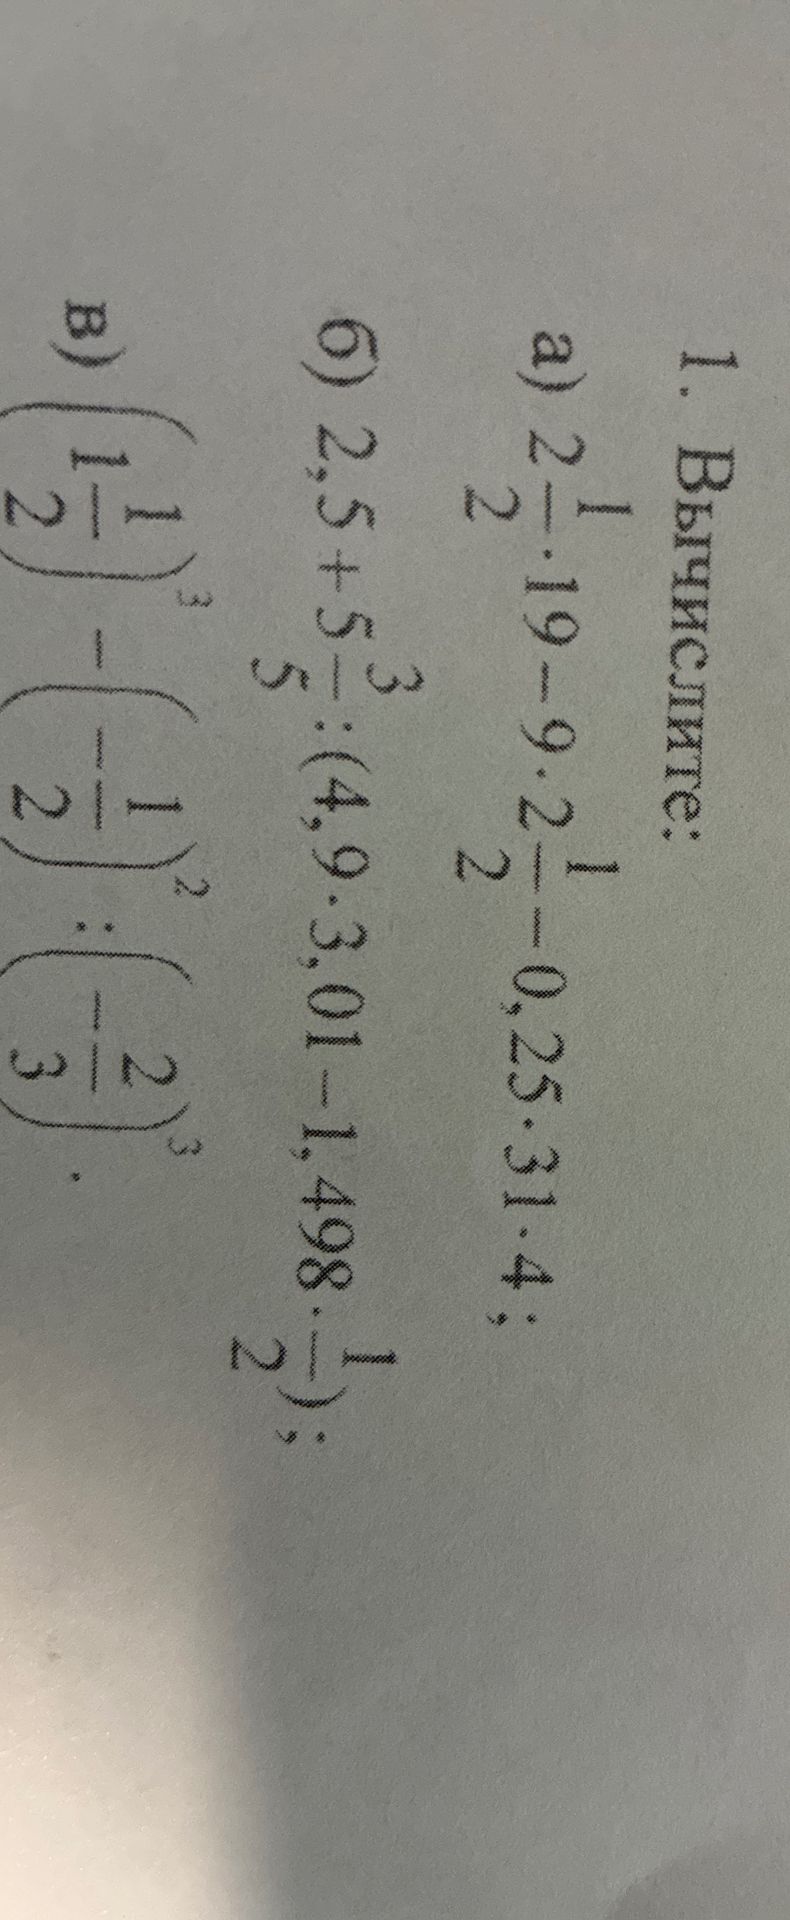 1. Вычислите:
а) 2 1/2 · 19 – 9 · 2 1/2 – 0,25 · 31 · 4 ;
б) 2,5 + 5 3/5 : (4,9 · 3,01 – 1,498 · 1/2) ;
в) (1 1/2)³ – (– 1/2)² : (– 2/3)³ .